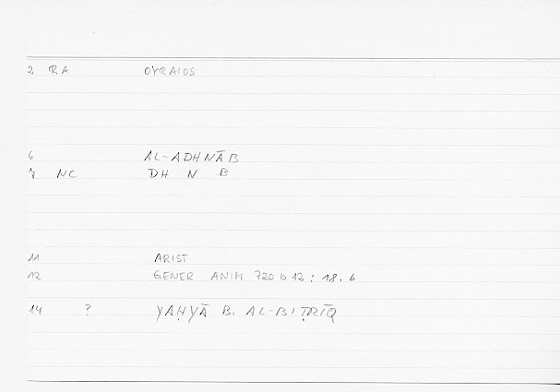 2 RA OYRAIOS
6 AL-ADHNĀB
7 NC DH N B
11 ARIST
12 GENER ANIM 720 b 12 : 18.6
14 ? YAḤYĀ B. AL-BIṬRĪQ